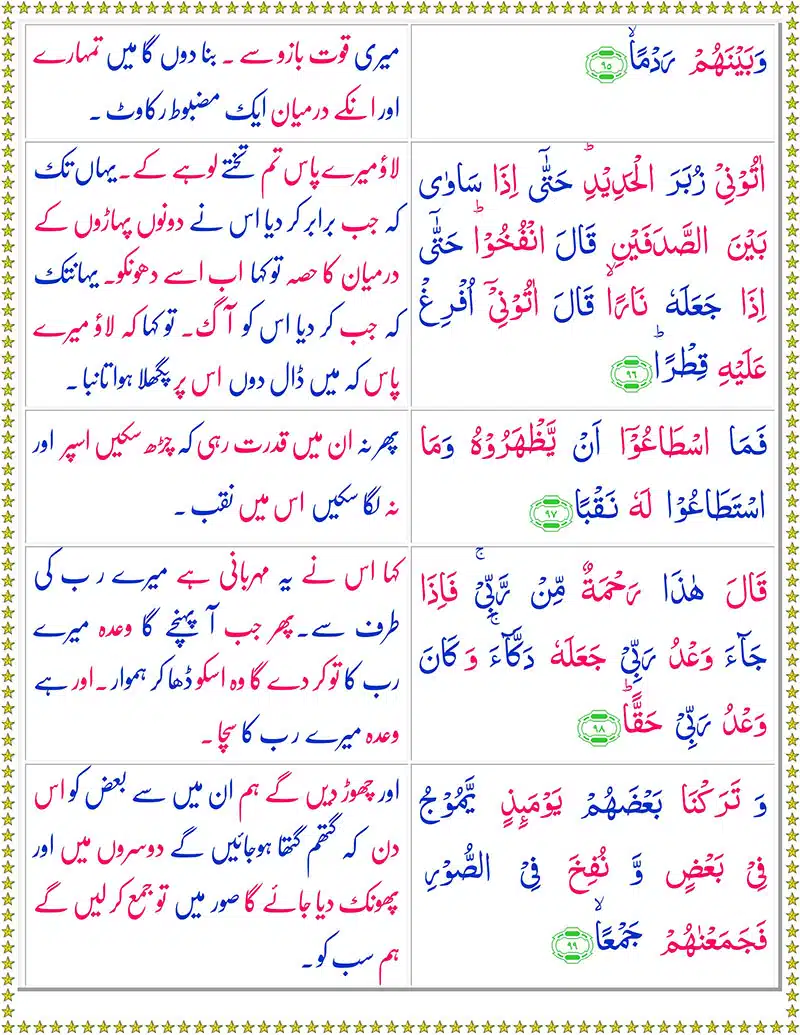 وَبَيْنَهُمْ رَدْمًاۙ ٩٥
میری قوت بازو سے ۔ بنا دوں گا میں تمہارے
اور انکے درمیان ایک مضبوط رکاوٹ ۔
اٰتُوْنِيْ زُبَرَ الْحَدِيْدِؕ حَتّٰۤى اِذَا سَاوٰى
بَيْنَ الصَّدَفَيْنِ قَالَ انْفُخُوْاؕ حَتّٰۤى
اِذَا جَعَلَهٗ نَارًاۙ قَالَ اٰتُوْنِيْۤ اُفْرِغْ
عَلَيْهِ قِطْرًاؕ ٩٦
لاؤ میرے پاس تم تختے لوہے کے۔ یہاں تک
کہ جب برابر کر دیا اس نے دونوں پہاڑوں کے
درمیان کا حصہ تو کہا اب اسے دھونکو۔ یہانتک
کہ جب کر دیا اس کو آگ۔ تو کہا کہ لاؤ میرے
پاس کہ میں ڈال دوں اس پر پگھلا ہوا تانبا۔
فَمَا اسْطَاعُوْۤا اَنْ يَّظْهَرُوْهُ وَمَا
اسْتَطَاعُوْا لَهٗ نَقْبًا ٩٧
پھر نہ ان میں قدرت رہی کہ چڑھ سکیں اسپر اور
نہ لگا سکیں اس میں نقب ۔
قَالَ هٰذَا رَحْمَةٌ مِّنْ رَّبِّيْۚ فَاِذَا
جَآءَ وَعْدُ رَبِّيْ جَعَلَهٗ دَكَّآءَۚ وَ كَانَ
وَعْدُ رَبِّيْ حَقًّاؕ ٩٨
کہا اس نے یہ مہربانی ہے میرے رب کی
طرف سے۔ پھر جب آ پہنچے گا وعدہ میرے
رب کا تو کر دے گا وہ اسکو ڈھا کر ہموار۔ اور ہے
وعدہ میرے رب کا سچا۔
وَ تَرَكْنَا بَعْضَهُمْ يَوْمَىِٕذٍ يَّمُوْجُ
فِيْ بَعْضٍ وَّ نُفِخَ فِي الصُّوْرِ
فَجَمَعْنٰهُمْ جَمْعًاۙ ٩٩
اور چھوڑ دیں گے ہم ان میں سے بعض کو اس
دن کہ گتھم گتھا ہوجائیں گے دوسروں میں اور
پھونک دیا جائے گا صور میں تو جمع کر لیں گے
ہم سب کو۔